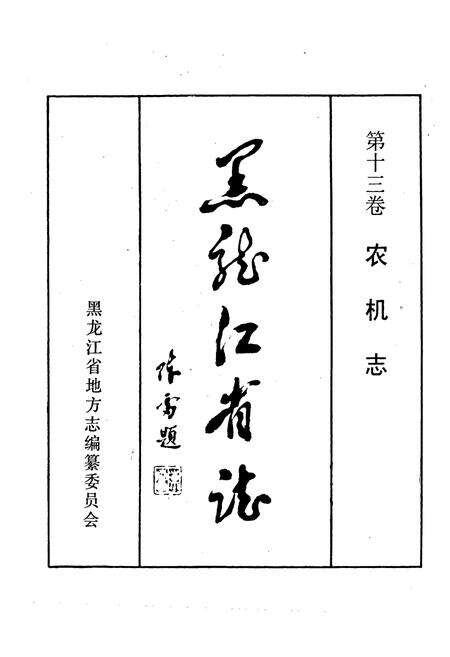 第十三卷 农机志
黑龙江省志
陈雷题
黑龙江省地方志编纂委员会